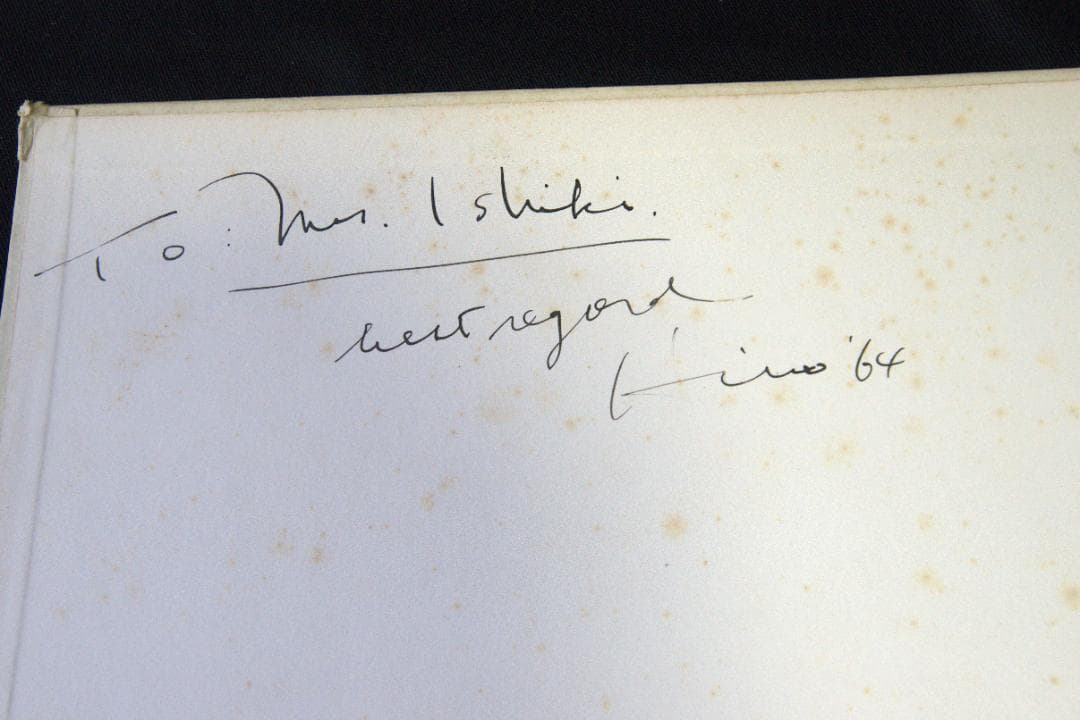 To: Mrs. Ishiki.
best regard
Hiro '64